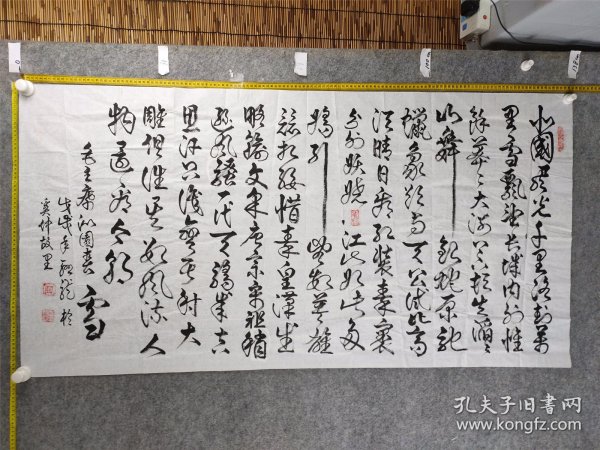 北國風光千里冰封萬
里雪飄望長城內外惟
餘莽々大河上下頓失滔々
山舞銀蛇原馳
蠟象欲與天公試比高
須晴日看紅裝素裹
分外妖嬈江山如此多
嬌引無數英雄
競折腰惜秦皇漢武
略輸文采唐宗宋祖稍
遜風騷一代天驕成吉
思汗只識彎弓射大
雕俱往矣數風流人
物還看今朝
毛主席沁園春雪
戊戌年
奚仲故里
孔夫子旧書网
www.kongfz.com